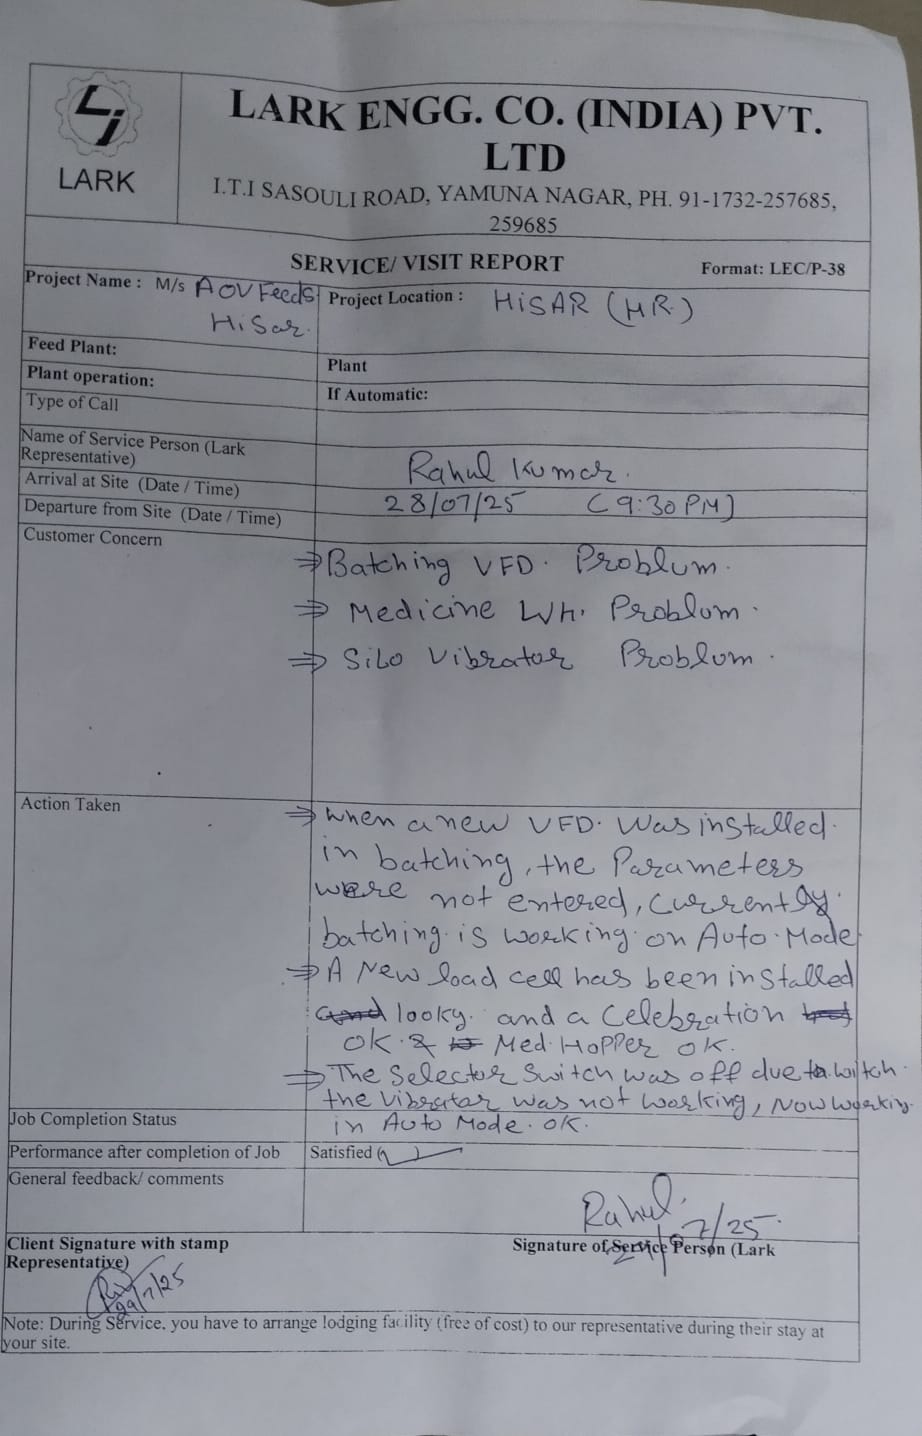 LARK
LARK ENGG. CO. (INDIA) PVT.
LTD
I.T.I SASOULI ROAD, YAMUNA NAGAR, PH. 91-1732-257685,
259685
SERVICE/ VISIT REPORT
Format: LEC/P-38
Project Name : M/s AOV Feeds
Hisar.
Project Location : HiSAR (HR.)
Feed Plant:
Plant
Plant operation:
If Automatic:
Type of Call
Name of Service Person (Lark
Representative)
Rahul Kumar.
Arrival at Site (Date / Time)
28/07/25 (9:30 PM)
Departure from Site (Date / Time)
Customer Concern
⇒ Batching VFD. Problum.
⇒ Medicine Wh. Problum.
⇒ SiLo Vibrator Problum.
Action Taken
⇒ when a new VFD. Was installed.
in batching, the Parameters
were not entered, currently.
batching is working on Auto Mode
⇒ A New load cell has been installed
looky. and a Celebration
OK. & Med. Hopper OK.
⇒ The Selector Switch was off due to. witch.
the Vibrator was not working, Now workin.
Job Completion Status
in Auto Mode. OK.
Performance after completion of Job
Satisfied
General feedback/ comments
Rahul.
7/25.
Client Signature with stamp
Signature of Service Person (Lark
Representative)
29/7/25
Note: During Service, you have to arrange lodging facility (free of cost) to our representative during their stay at
your site.